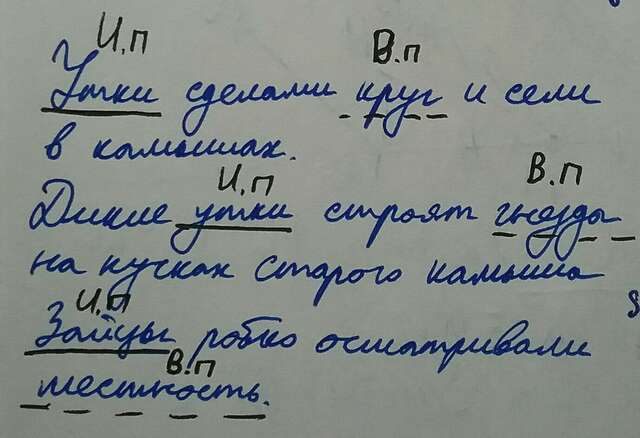 И.п В.п
Утки сделали круг и сели
в камышах.
И.п В.п
Дикие утки строят гнёзда
на кучках старого камыша
И.п
Зайцы робко осматривали
В.п
местность.